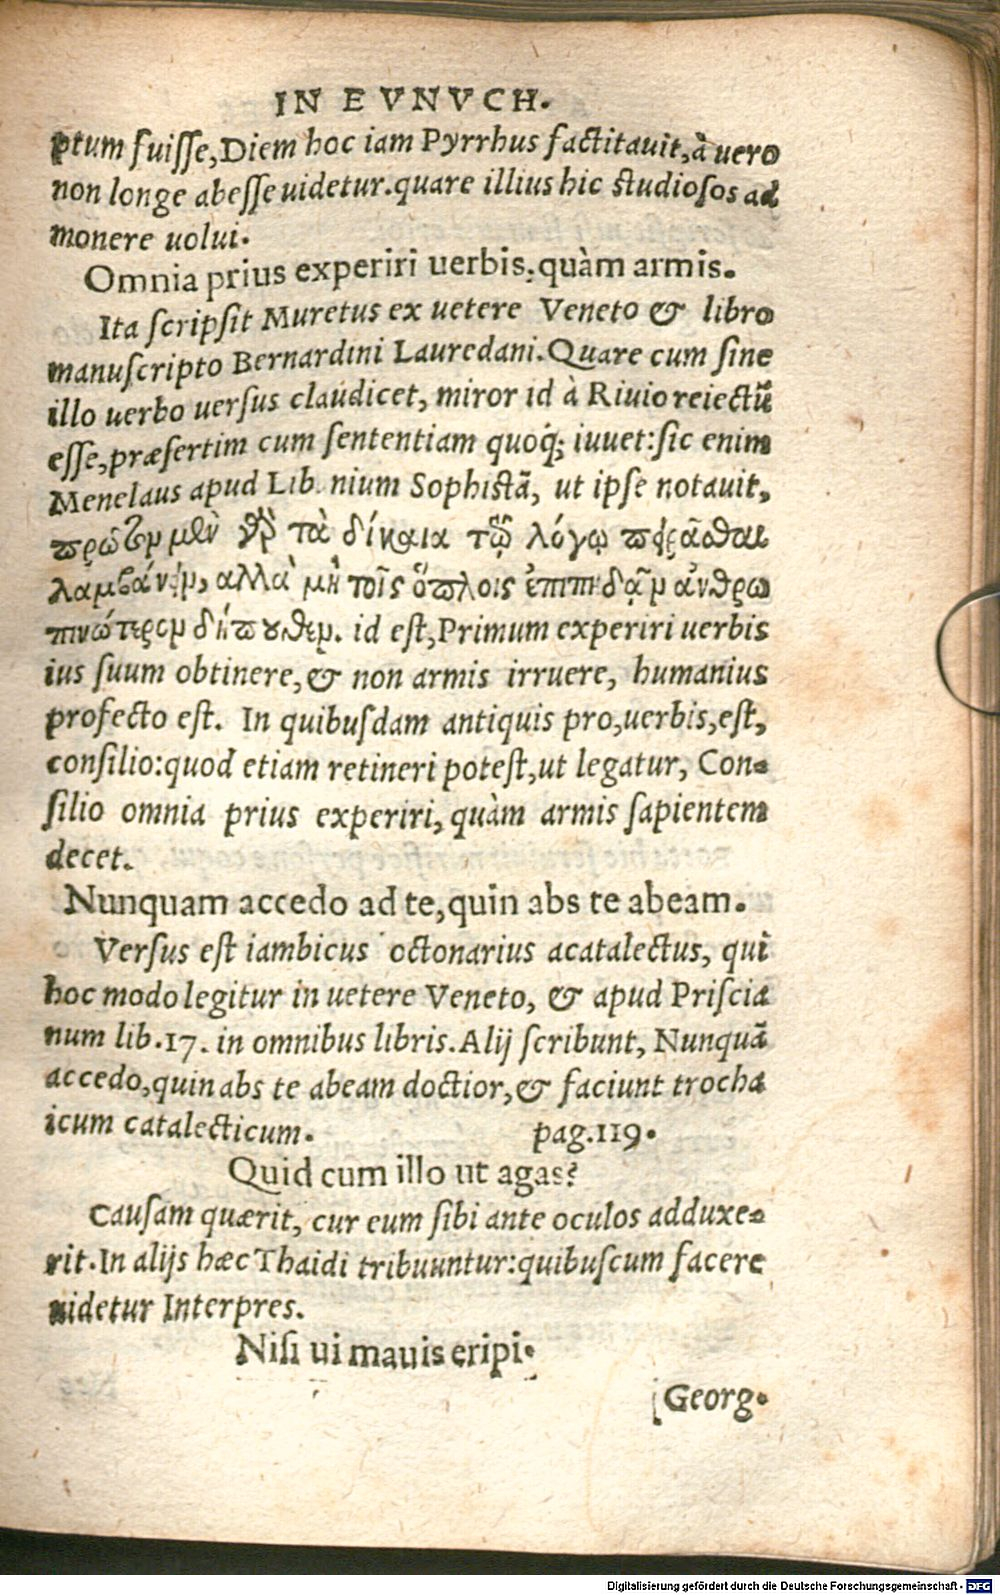 IN EVNVCH.
ptum fuiſſe, Diem hoc iam Pyrrhus factitauit, à uero
non longe abeſſe uidetur. quare illius hic ſtudioſos ad
monere uolui.
Omnia prius experiri uerbis, quàm armis.
Ita ſcripſit Muretus ex uetere Veneto & libro
manuſcripto Bernardini Lauredani. Quare cum ſine
illo uerbo uerſus claudicet, miror id à Riuio reiectũ
eſſe, præſertim cum ſententiam quoq; iuuet: ſic enim
Menelaus apud Lib nium Sophiſtã, ut ipſe notauit,
πρῶτον μὲν γὰρ τὰ δίκαια τῷ λόγῳ πειρᾶσθαι
λαμβάνειν, αλλὰ μὴ τοῖς ὅπλοις ἐπιπηδᾷν ἀνθρω
πινώτερον δήπουθεν. id eſt, Primum experiri uerbis
ius ſuum obtinere, & non armis irruere, humanius
profecto eſt. In quibuſdam antiquis pro, uerbis, eſt,
conſilio: quod etiam retineri poteſt, ut legatur, Con-
ſilio omnia prius experiri, quàm armis ſapientem
decet.
Nunquam accedo ad te, quin abs te abeam.
Verſus eſt iambicus octonarius acatalectus, qui
hoc modo legitur in uetere Veneto, & apud Priſcia
num lib. 17. in omnibus libris. Alij ſcribunt, Nunquã
accedo, quin abs te abeam doctior, & faciunt trocha
icum catalecticum. pag. 119.
Quid cum illo ut agas?
Cauſam quærit, cur eum ſibi ante oculos adduxe-
rit. In alijs hæc Thaidi tribuuntur: quibuſcum facere
uidetur Interpres.
Niſi ui mauis eripi.
Georg.
Digitalisierung gefördert durch die Deutsche Forschungsgemeinschaft - DFG